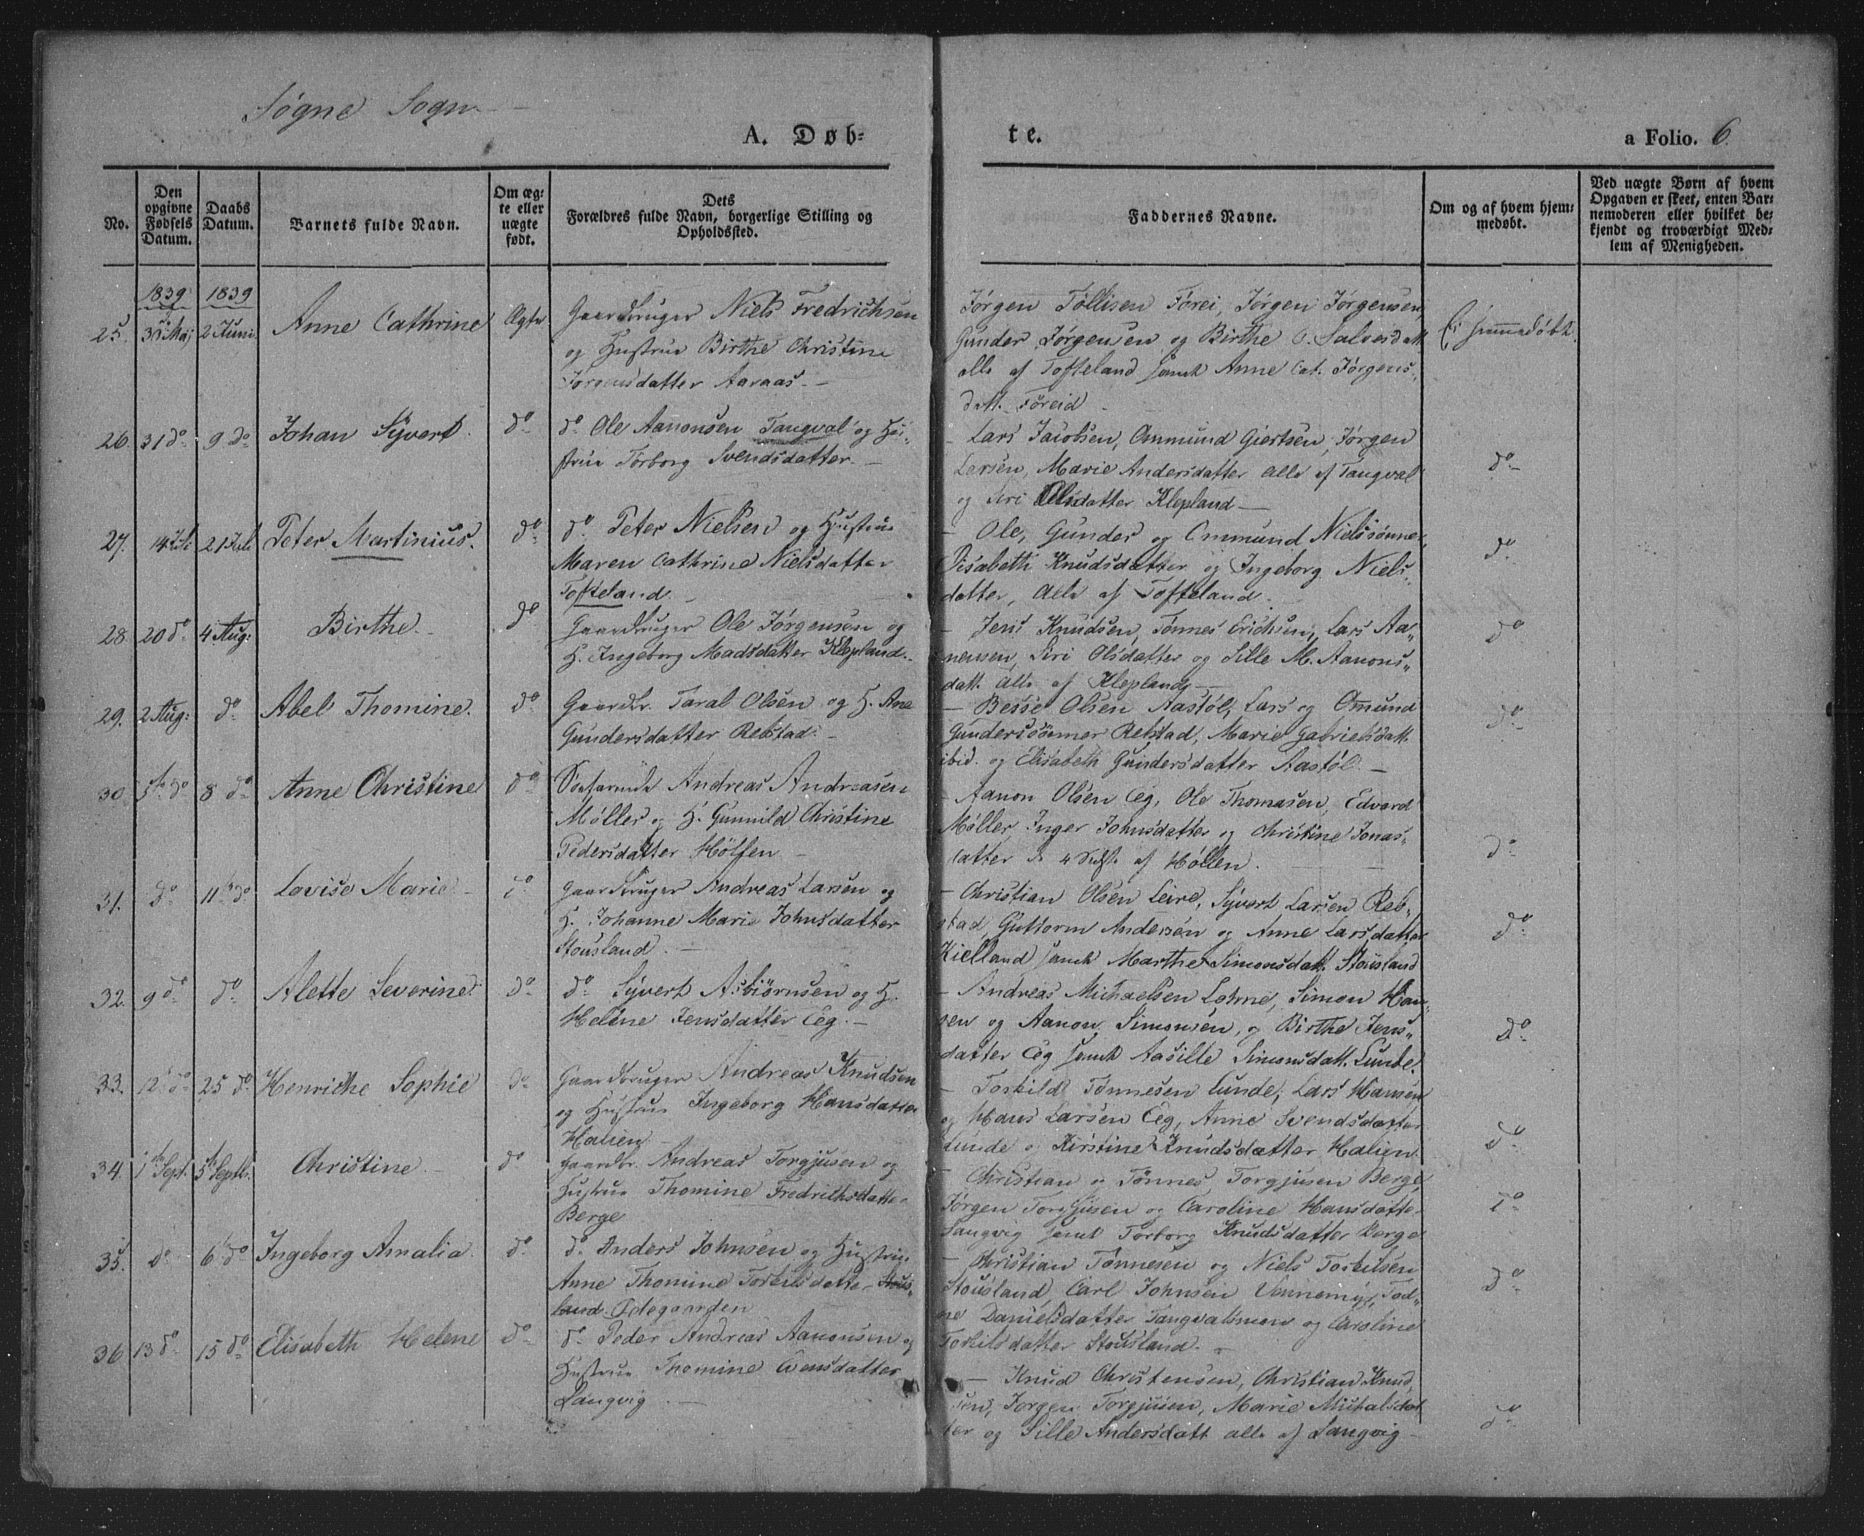 Søgne Sogn
A. Døb-
te.
a Folio. 6.
No.
Den opgivne Fødsels Datum.
Daabs Datum.
Barnets fulde Navn.
Om ægte eller uægte født.
Dets
Forældres fulde Navn, borgerlige Stilling og
Opholdssted.
Faddernes Navne.
Om og af hvem hjem-
medøbt.
Ved uægte Børn af hvem
Opgaven er skeet, enten Bar-
nemoderen eller hvilket be-
kjendt og troværdigt Med-
lem af Menigheden.
1839 1839
25. 31 Maj 2 Juni Anne Cathrine Ægte Gaardbruger Niels Fredrichsen
og Hustrue Birthe Christine
Jørgensdatter Aaraas.
Jørgen Tøllisen Føreid, Jørgen Jørgensen,
Gunder Jørgensen og Birthe O. Salvesdatt.
alle af Tofteland samt Anne Cat. Jørgens-
datt. Føreid
Ei hjemmedøbt.
26. 31 do 9 do Johan Syvert. do do Ole Aanonsen Tangval og Hu-
strue Torborg Svendsdatter.
Lars Jacobsen, Ommund Giertsen, Jørgen
Larsen, Marie Andersdatter alle af Tangval
og Siri Olsdatter Klepland
do
27. 14 Juli 21 Juli Peter Martinius. do do Peter Nielsen og Hustrue
Maren Cathrine Nielsdatter
Tofteland.
Ole, Gunder og Ommund Nielssønner,
Lisabeth Knudsdatter og Ingeborg Niels-
datter, Alle af Tofteland.
do
28 20 do 4 Aug: Birthe do Gaardbruger Ole Jørgensen og
H. Ingeborg Madsdatter Klepland.
Jens Knudsen, Tønnes Erichsen, Lars Aa-
nensen, Siri Olsdatter og Sille M. Aanons-
datt. alle af Klepland
do
29. 2 Aug: do Abel Thomine. do Gaardbr. Taral Olsen og H. Ane
Gundersdatter Rebstad.
Besse Olsen Aastøl, Lars og Omund
Gunderssønner Rebstad, Marie Gabrielsdatt.
ibid. og Elisabeth Gundersdatter Aastøl.
do
30 5te do 8 do Anne Christine do Søefarende Andreas Andreasen
Møller og H. Gunnild Christine
Pedersdatter Høllen
Aanon Olsen Eeg, Ole Thomasen, Edvard
Møller, Inger Johnsdatter og Christine Jonas-
datter de 4 Sidste af Høllen.
do
31. do 11te do Lovise Marie do Gaardbruger Andreas Larsen og
H. Johanne Marie Johnsdatter
Stousland.
Christian Olsen Leire, Syvert Larsen Reb-
stad, Guttorm Andersen og Anne Larsdatter
Kielland samt Marthe Simonsdatt. Stousland
do
32. 9 do do Alette Severine do do Syvert Asbiørnsen og H.
Helene Jensdatter Eeg.
Andreas Michaelsen Lohne, Simon Han-
sen og Aanon Simonsen, og Birthe Jens-
datter Eeg samt Aasille Simonsdatt. Lunde.
do
33. 12 do 25 do Henricthe Sophie do Gaardbruger Andreas Knudsen
og Hustrue Ingeborg Hansdatter
Halien
Torkild Tønnesen Lunde, Lars Hansen
og Hans Larsen Eeg, Anne Svendsdatter
Lunde og Kirstine Knudsdatter Halien
do
34 1ste Sept. 5te Septb. Christine do Gaardbr. Andreas Torgjusen og
Hustrue Thomine Fredrichsdatter
Berge
Christian og Tønnes Torgjusen Berge
Jørgen Torgjusen og Caroline Hansdatter
Langvig samt Torborg Knudsdatter Berge
do
35. do 6 do Ingeborg Amalia. do do Anders Johnsen og Hustrue
Anne Thomine Torkilsdatter Stous-
land. Ødegaarden
Christian Tønnesen og Niels Torkilsen
Stousland, Carl Johnsen Vennemyr,
Danielsdatter Tangvalsmoen og Caroline
Torkilsdatter Stousland.
do
36 13 do 15 do Elisabeth Helene do do Peder Andreas Aanonsen og
Hustrue Thomine Evensdatter
Langvig
Knud Christensen, Christian Knud-
sen, Jørgen Torgjusen, Marie
og Sille Andersdatt alle af Langvig
do